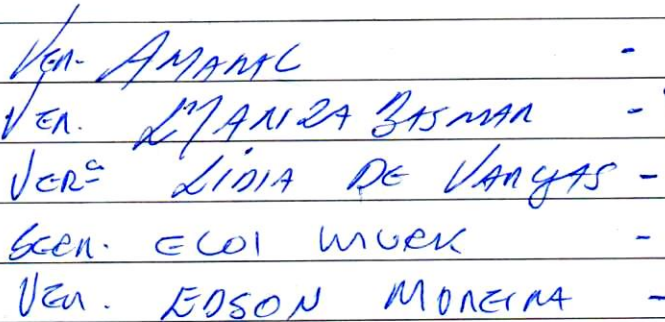 Ver. Amaral -
Ver. Mariza Basmar -
Verª Lidia de Vargas -
Secr. Eloi -
Ver. Edson Moreira -